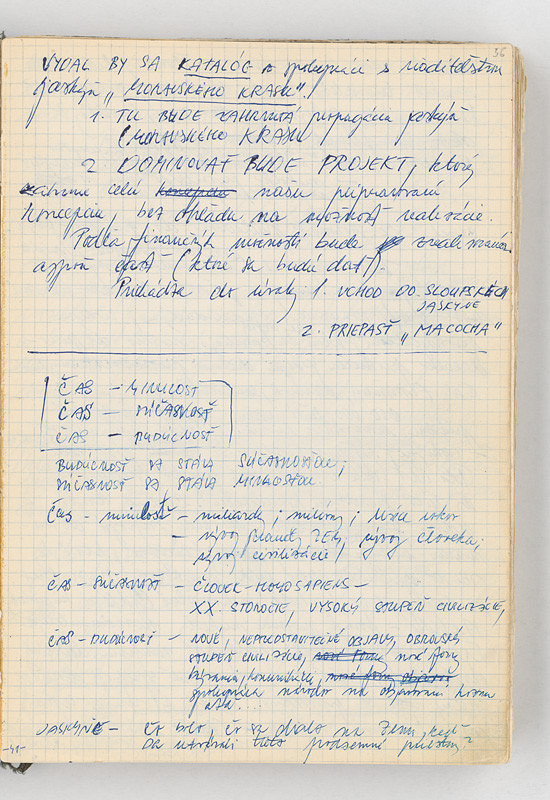 36
VYDAL BY SA KATALÓG v spolupráci s riaditeľstvom
jaskýň „MORAVSKÉHO KRASU".
1. TU BUDE ZAHRNUTÁ propagácia jaskýň
(MORAVSKÉHO KRASU
2. DOMINOVAŤ BUDE PROJEKT, ktorý
zahrnie celú koncepciu našu pripravovanú
koncepciu, bez ohľadu na možnosť realizácie.
Podľa finančných možností bude zrealizovaná
aspoň časť (ktoré sa budú dať).
Prichádza do úvahy 1. VCHOD DO SLOUPSKÝCH
JASKYNE
2. PRIEPASŤ „MACOCHA"
ČAS – MINULOSŤ
ČAS – SÚČASNOSŤ
ČAS – BUDÚCNOSŤ
BUDÚCNOSŤ SA STÁVA SÚČASNOSŤOU;
SÚČASNOSŤ SA STÁVA MINULOSŤOU
Čas – minulosť – miliardy; milióny; tisíce rokov
– vývoj planéty ZEM, vývoj človeka;
vývoj civilizácie;
ČAS – SÚČASNOSŤ – ČLOVEK – HOMOSAPIENS –
XX. STOROČIE, VYSOKÝ STUPEŇ CIVILIZÁCIE,
ČAS – BUDÚCNOSŤ – NOVÉ, NEPREDSTAVITEĽNÉ OBJAVY, OBROVSKÝ
STUPEŇ CIVILIZÁCIE, nové formy nové formy
bývania, komunikácie, nové formy objavov
spolupráca národov na objavovaní kozmu
atď....
JASKYŇE – čo bolo, čo sa dialo na Zemi, keď
sa utvárali tieto podzemné priestory?
-41-